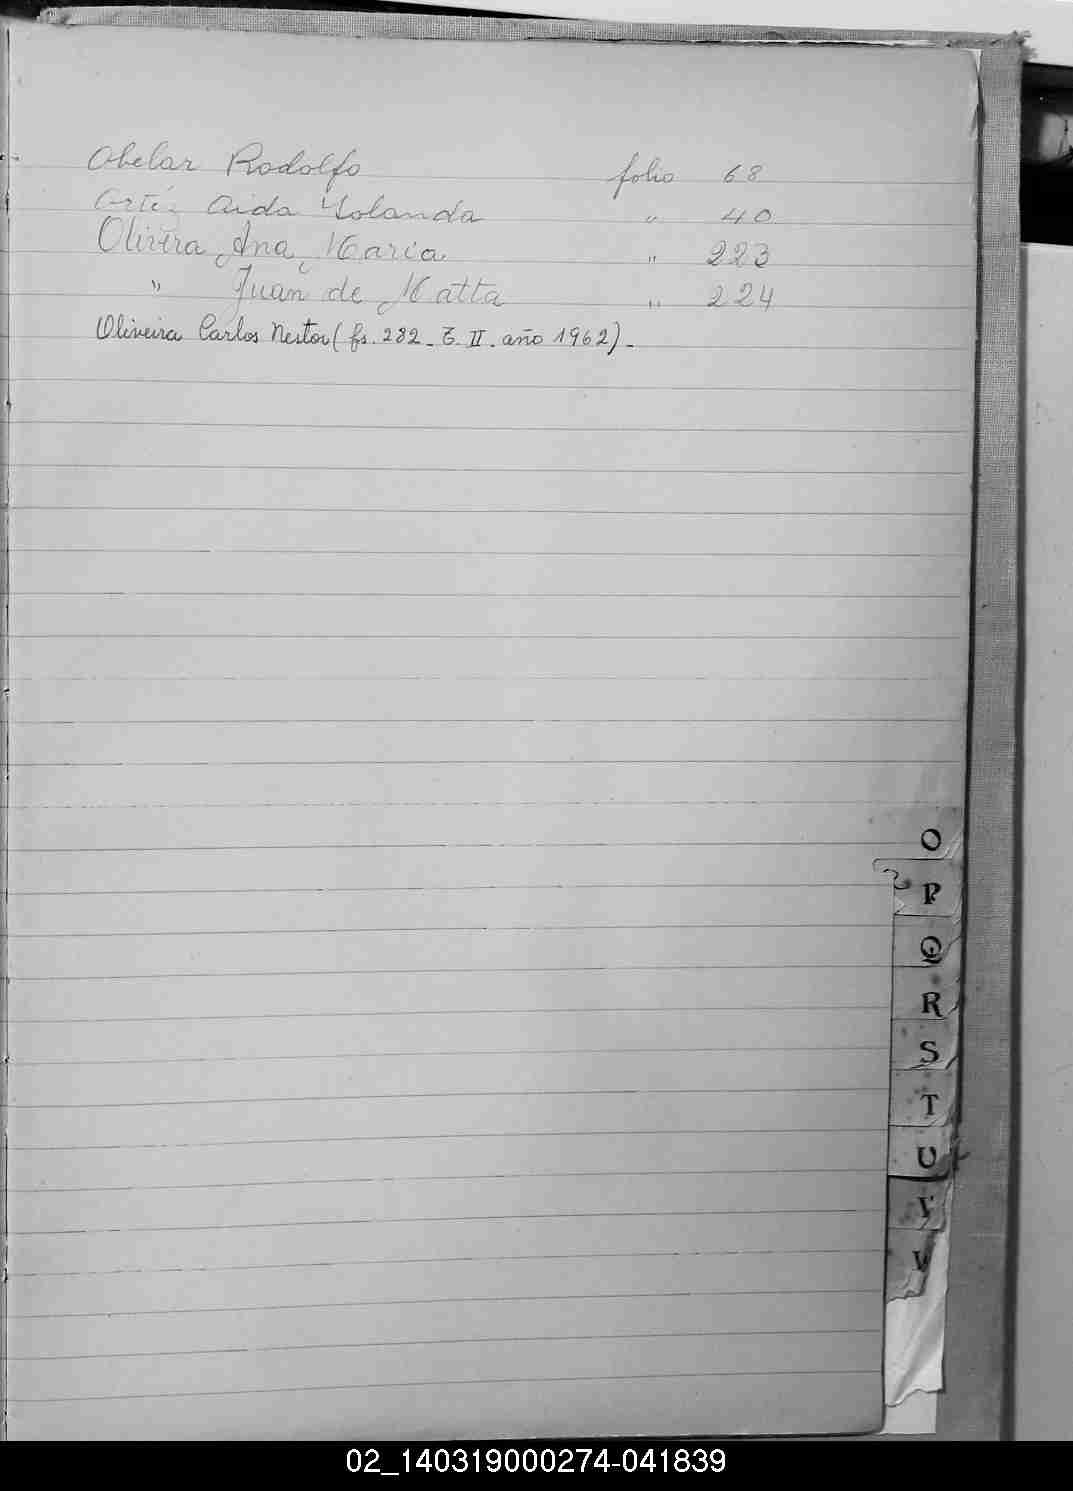 Obelar Rodolfo folio 68
Ortíz Aida Yolanda " 40
Olivera Ana Maria " 223
" Juan de Matta " 224
Oliveira Carlos Nestor (fs. 282 - T. II. año 1962). -
O
P
Q
R
S
T
U
V
W
02_140319000274-041839